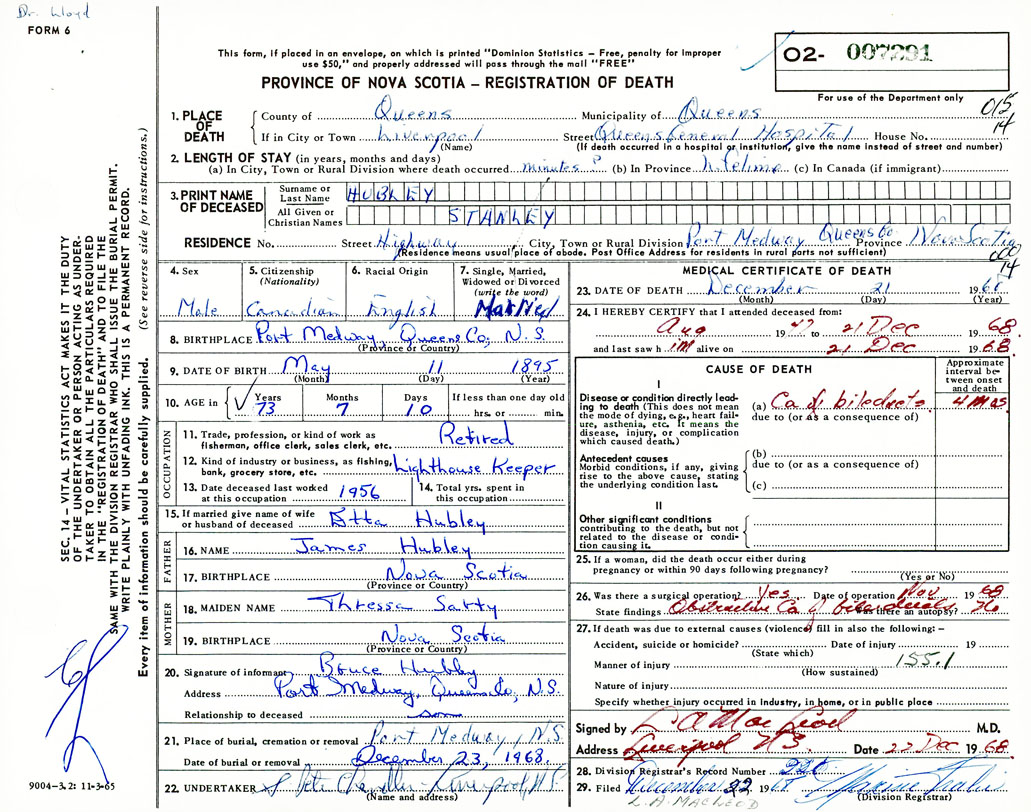 Dr. Lloyd
FORM 6
This form, if placed in an envelope, on which is printed "Dominion Statistics – Free, penalty for improper
use $50," and properly addressed will pass through the mail "FREE"
PROVINCE OF NOVA SCOTIA – REGISTRATION OF DEATH
O2- 007291
For use of the Department only
015
14
1. PLACE OF DEATH
County of Queens Municipality of Queens
If in City or Town Liverpool Street Queens General Hospital House No.
(Name) (If death occurred in a hospital or institution, give the name instead of street and number)
2. LENGTH OF STAY (in years, months and days)
(a) In City, Town or Rural Division where death occurred minutes (b) In Province Lifetime (c) In Canada (if immigrant)
3. PRINT NAME OF DECEASED
Surname or Last Name HUBLEY
All Given or Christian Names STANLEY
RESIDENCE No. Street Highway City, Town or Rural Division Port Medway Queens Co Province Nova Scotia
(Residence means usual place of abode. Post Office Address for residents in rural parts not sufficient)
000
14
4. Sex Male
5. Citizenship (Nationality) Canadian
6. Racial Origin English
7. Single, Married, Widowed or Divorced (write the word) Married
8. BIRTHPLACE Port Medway, Queens Co, N.S.
(Province or Country)
9. DATE OF BIRTH May 11 1895
(Month) (Day) (Year)
10. AGE in Years Months Days If less than one day old
73 7 10 hrs. or min.
OCCUPATION
11. Trade, profession or kind of work as fisherman, office clerk, sales clerk, etc. Retired
12. Kind of industry or business, as fishing, bank, grocery store, etc. Lighthouse Keeper
13. Date deceased last worked at this occupation 1956
14. Total yrs. spent in this occupation
15. If married give name of wife or husband of deceased Etta Hubley
FATHER
16. NAME James Hubley
17. BIRTHPLACE Nova Scotia
(Province or Country)
MOTHER
18. MAIDEN NAME Thressa
19. BIRTHPLACE Nova Scotia
(Province or Country)
20. Signature of informant Bruce Hubley
Address Port Medway, Queens Co, N.S.
Relationship to deceased son
21. Place of burial, cremation or removal Port Medway, N.S.
Date of burial or removal December 23, 1968
22. UNDERTAKER Chandler Liverpool N.S.
(Name and address)
MEDICAL CERTIFICATE OF DEATH
23. DATE OF DEATH December 21 1968
(Month) (Day) (Year)
24. I HEREBY CERTIFY that I attended deceased from:
Aug 1947 to 21 Dec 68
and last saw him alive on 21 Dec 1968
CAUSE OF DEATH
Approximate interval between onset and death
I
Disease or condition directly leading to death (This does not mean the mode of dying, e.g., heart failure, asthenia, etc. It means the disease, injury, or complication which caused death.)
(a) Ca of bile ducts 4 mos
due to (or as a consequence of)
Antecedent causes
Morbid conditions, if any, giving rise to the above cause, stating the underlying condition last.
(b)
due to (or as a consequence of)
(c)
II
Other significant conditions
contributing to the death, but not related to the disease or condition causing it.
25. If a woman, did the death occur either during
pregnancy or within 90 days following pregnancy?
(Yes or No)
26. Was there a surgical operation? Yes Date of operation Nov 1968
State findings Obstructive Ca of bile ducts Was there an autopsy? No
27. If death was due to external causes (violence) fill in also the following: –
Accident, suicide or homicide? Date of injury 19
(State which)
Manner of injury 155.1
(How sustained)
Nature of injury
Specify whether injury occurred in Industry, in home, or in public place
Signed by L. A MacLeod M.D.
Address Liverpool N.S. Date 22 Dec 1968
28. Division Registrar's Record Number
29. Filed December 22 1968
(Division Registrar)
L.A. MACLEOD
SEC. 14 – VITAL STATISTICS ACT MAKES IT THE DUTY
OF THE UNDERTAKER OR PERSON ACTING AS UNDER-
TAKER TO OBTAIN ALL THE PARTICULARS REQUIRED
IN THE "REGISTRATION OF DEATH" AND TO FILE THE
SAME WITH THE DIVISION REGISTRAR WHO SHALL ISSUE THE BURIAL PERMIT.
WRITE PLAINLY WITH UNFADING INK. THIS IS A PERMANENT RECORD.
Every item of information should be carefully supplied. (See reverse side for instructions.)
9004-3.2: 11-3-65